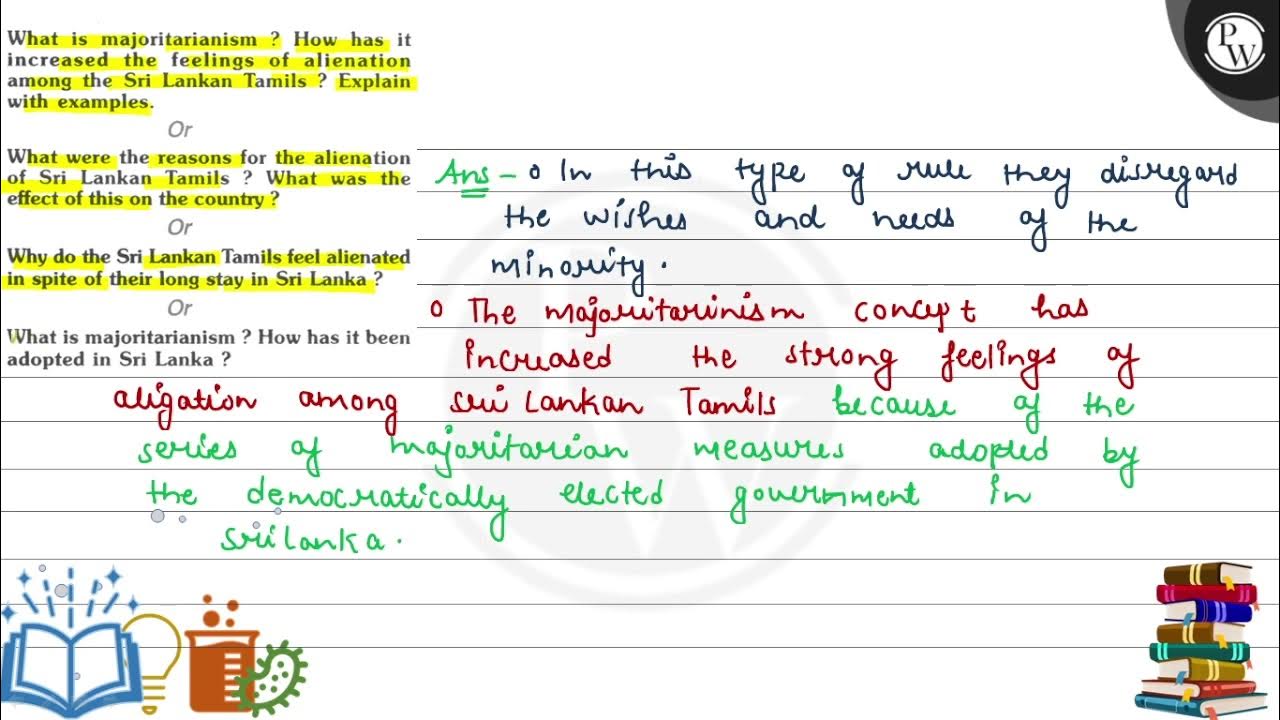 What is majoritarianism ? How has it
increased the feelings of alienation
among the Sri Lankan Tamils ? Explain
with examples.
Or
What were the reasons for the alienation
of Sri Lankan Tamils ? What was the
effect of this on the country ?
Or
Why do the Sri Lankan Tamils feel alienated
in spite of their long stay in Sri Lanka ?
Or
What is majoritarianism ? How has it been
adopted in Sri Lanka ?
PW
Ans - o In this type of rule they disregard
the wishes and needs of the
minority.
o The majoritarinism concept has
increased the strong feelings of
aligation among sri Lankan Tamils because of the
series of majoritarian measures adopted by
the democratically elected government in
srilanka.